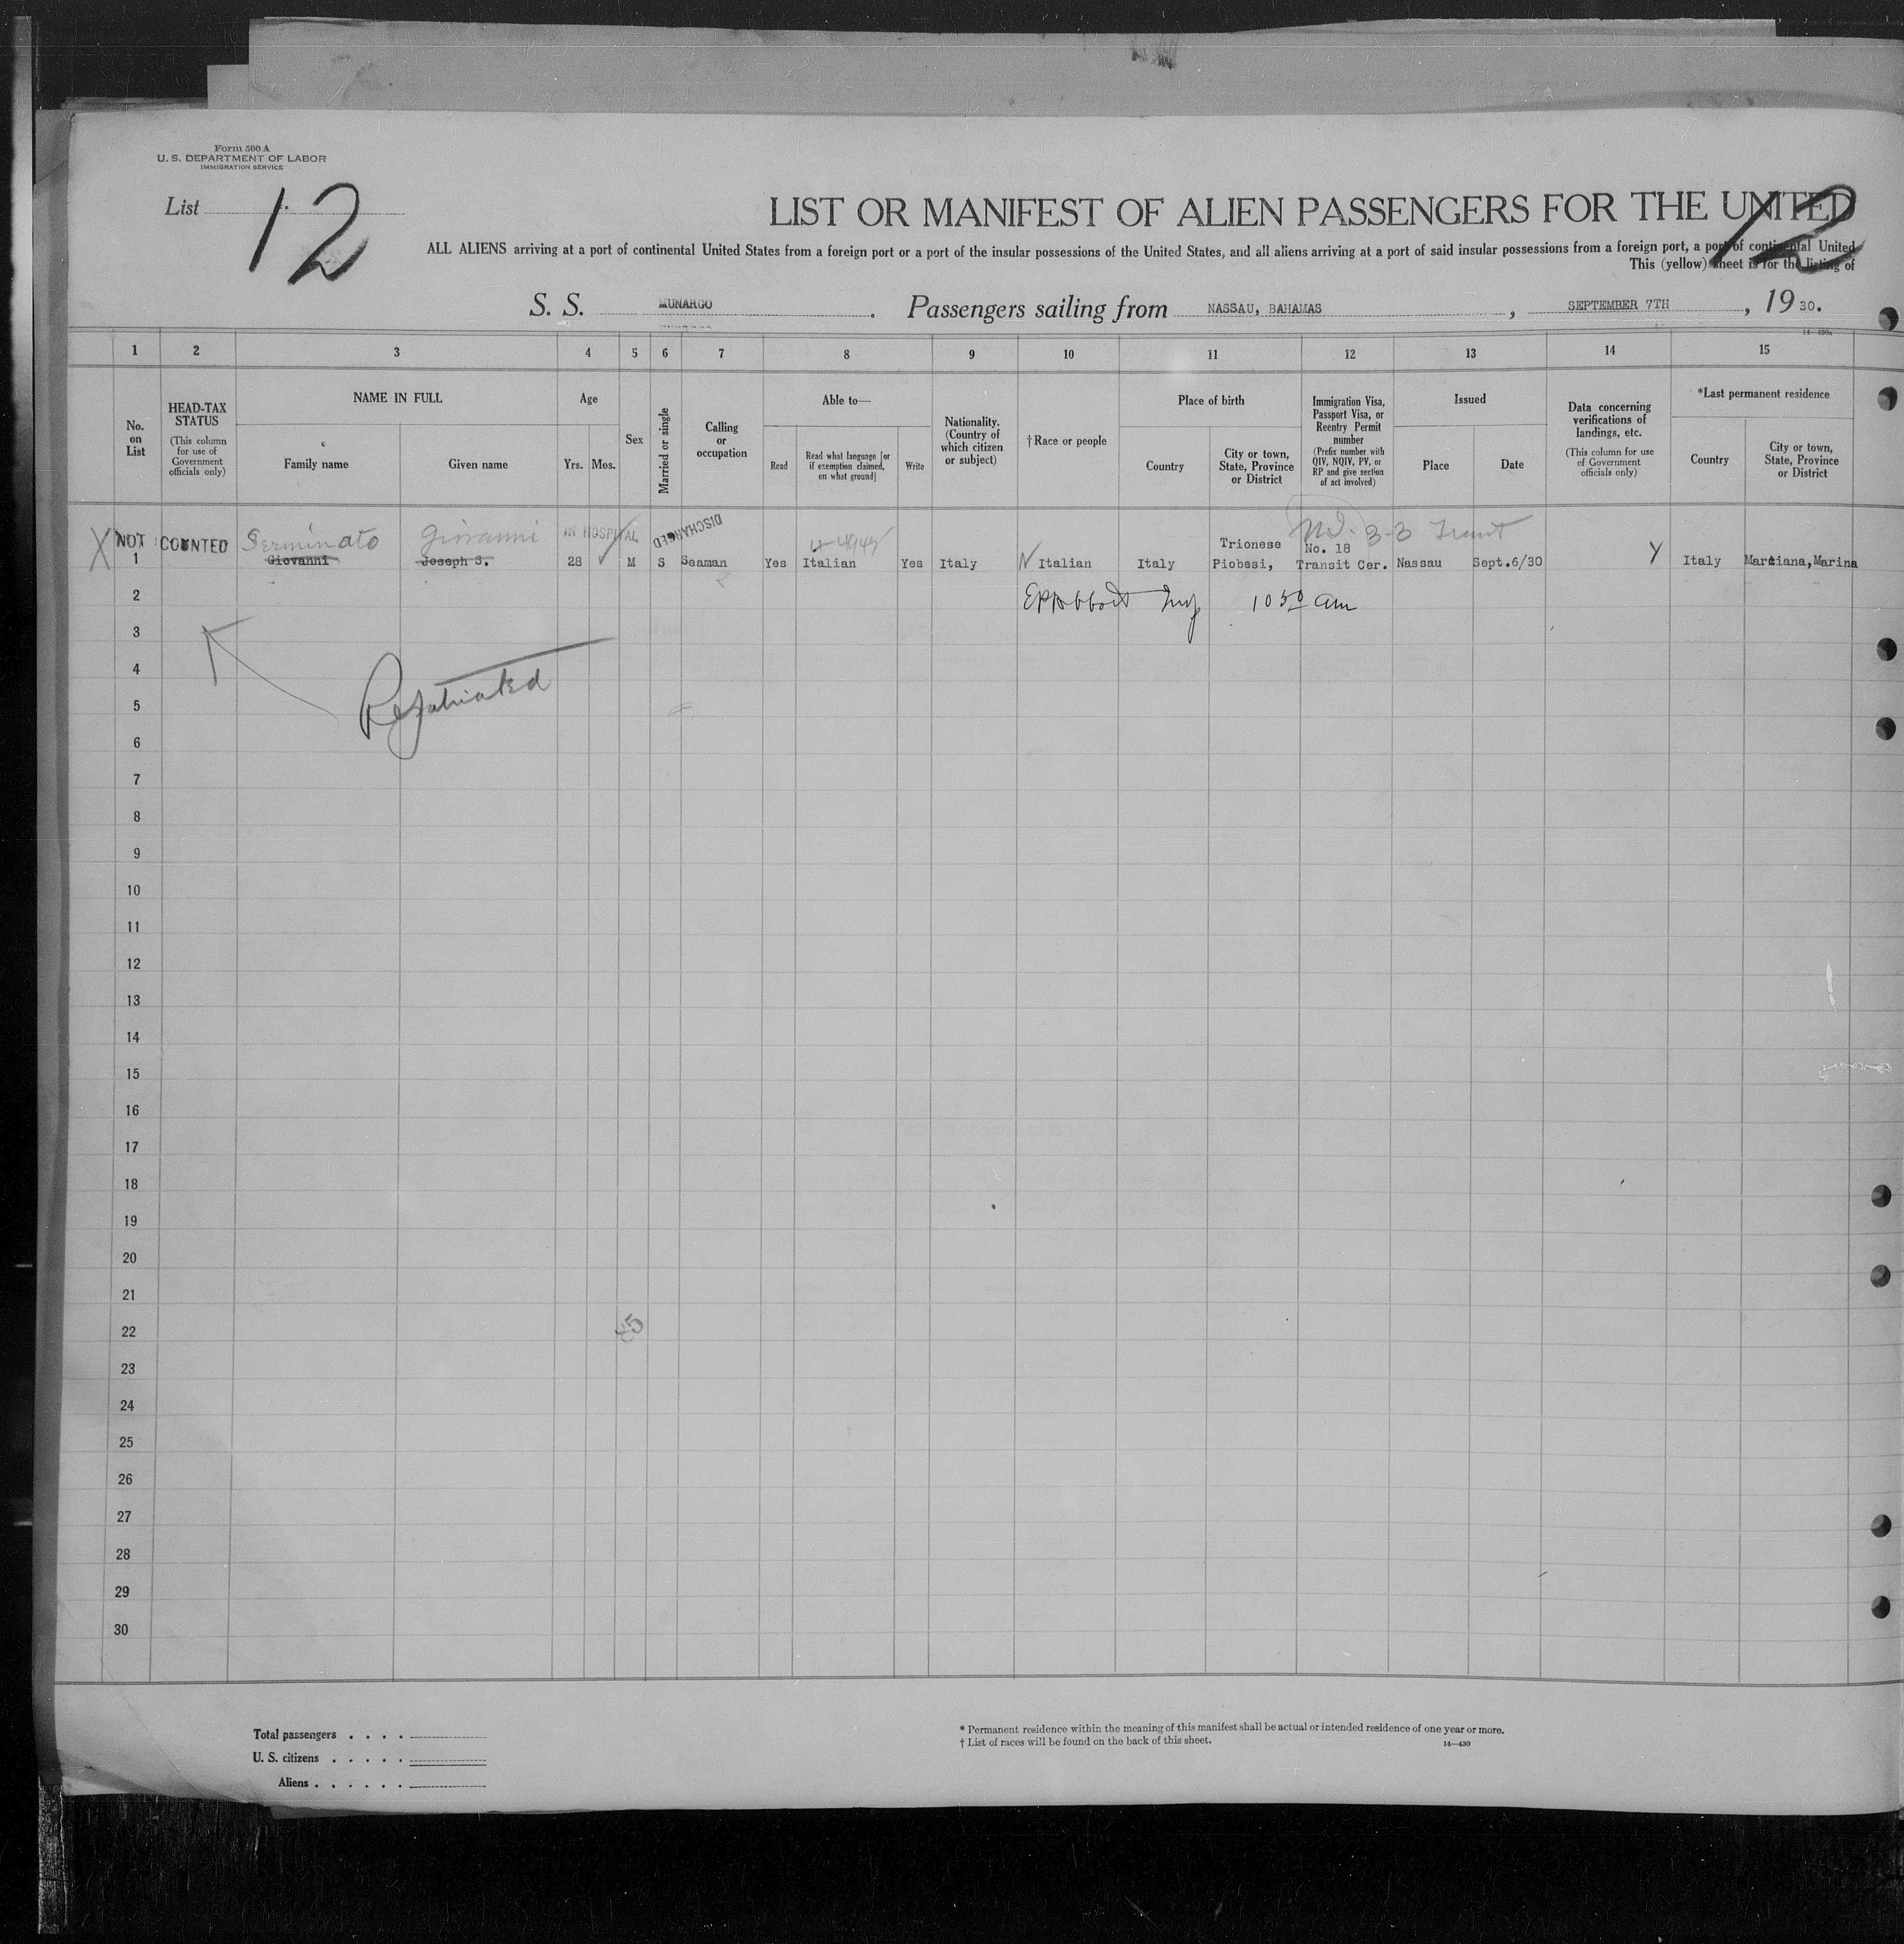 Form 500 A
U. S. DEPARTMENT OF LABOR
IMMIGRATION SERVICE
List 12
12
LIST OR MANIFEST OF ALIEN PASSENGERS FOR THE UNITED
ALL ALIENS arriving at a port of continental United States from a foreign port or a port of the insular possessions of the United States, and all aliens arriving at a port of said insular possessions from a foreign port, a port of continental United
This (yellow) sheet is for the listing of
S. S. MUNARGO. Passengers sailing from NASSAU, BAHAMAS, SEPTEMBER 7TH, 1930.
14—430a
1 2 3 4 5 6 7 8 9 10 11 12 13 14 15
No. on List
HEAD-TAX STATUS (This column for use of Government officials only)
NAME IN FULL
Family name
Given name
Age
Yrs.
Mos.
Sex
Married or single
Calling or occupation
Able to—
Read
Read what language [or if exemption claimed, on what ground]
Write
Nationality. (Country of which citizen or subject)
† Race or people
Place of birth
Country
City or town, State, Province or District
Immigration Visa, Passport Visa, or Reentry Permit number (Prefix number with QIV, NQIV, PV, or RP and give section of act involved)
Issued
Place
Date
Data concerning verifications of landings, etc. (This column for use of Government officials only)
*Last permanent residence
Country
City or town, State, Province or District
X NOT COUNTED Serminato Giovanni IN HOSPITAL DISCHARGED Trionese 3-3
No. 18
1 Giovanni Joseph S. 28 M S Seaman Yes Italian Yes Italy Italian Italy Piobesi, Transit Cer. Nassau Sept.6/30 Y Italy Marciana,Marina
2 10 50 am
3
4 Repatriated
5
6
7
8
9
10
11
12
13
14
15
16
17
18
19
20
21
22
23
24
25
26
27
28
29
30
Total passengers . . . .
U. S. citizens . . . . .
Aliens . . . . . .
* Permanent residence within the meaning of this manifest shall be actual or intended residence of one year or more.
† List of races will be found on the back of this sheet. 14—430